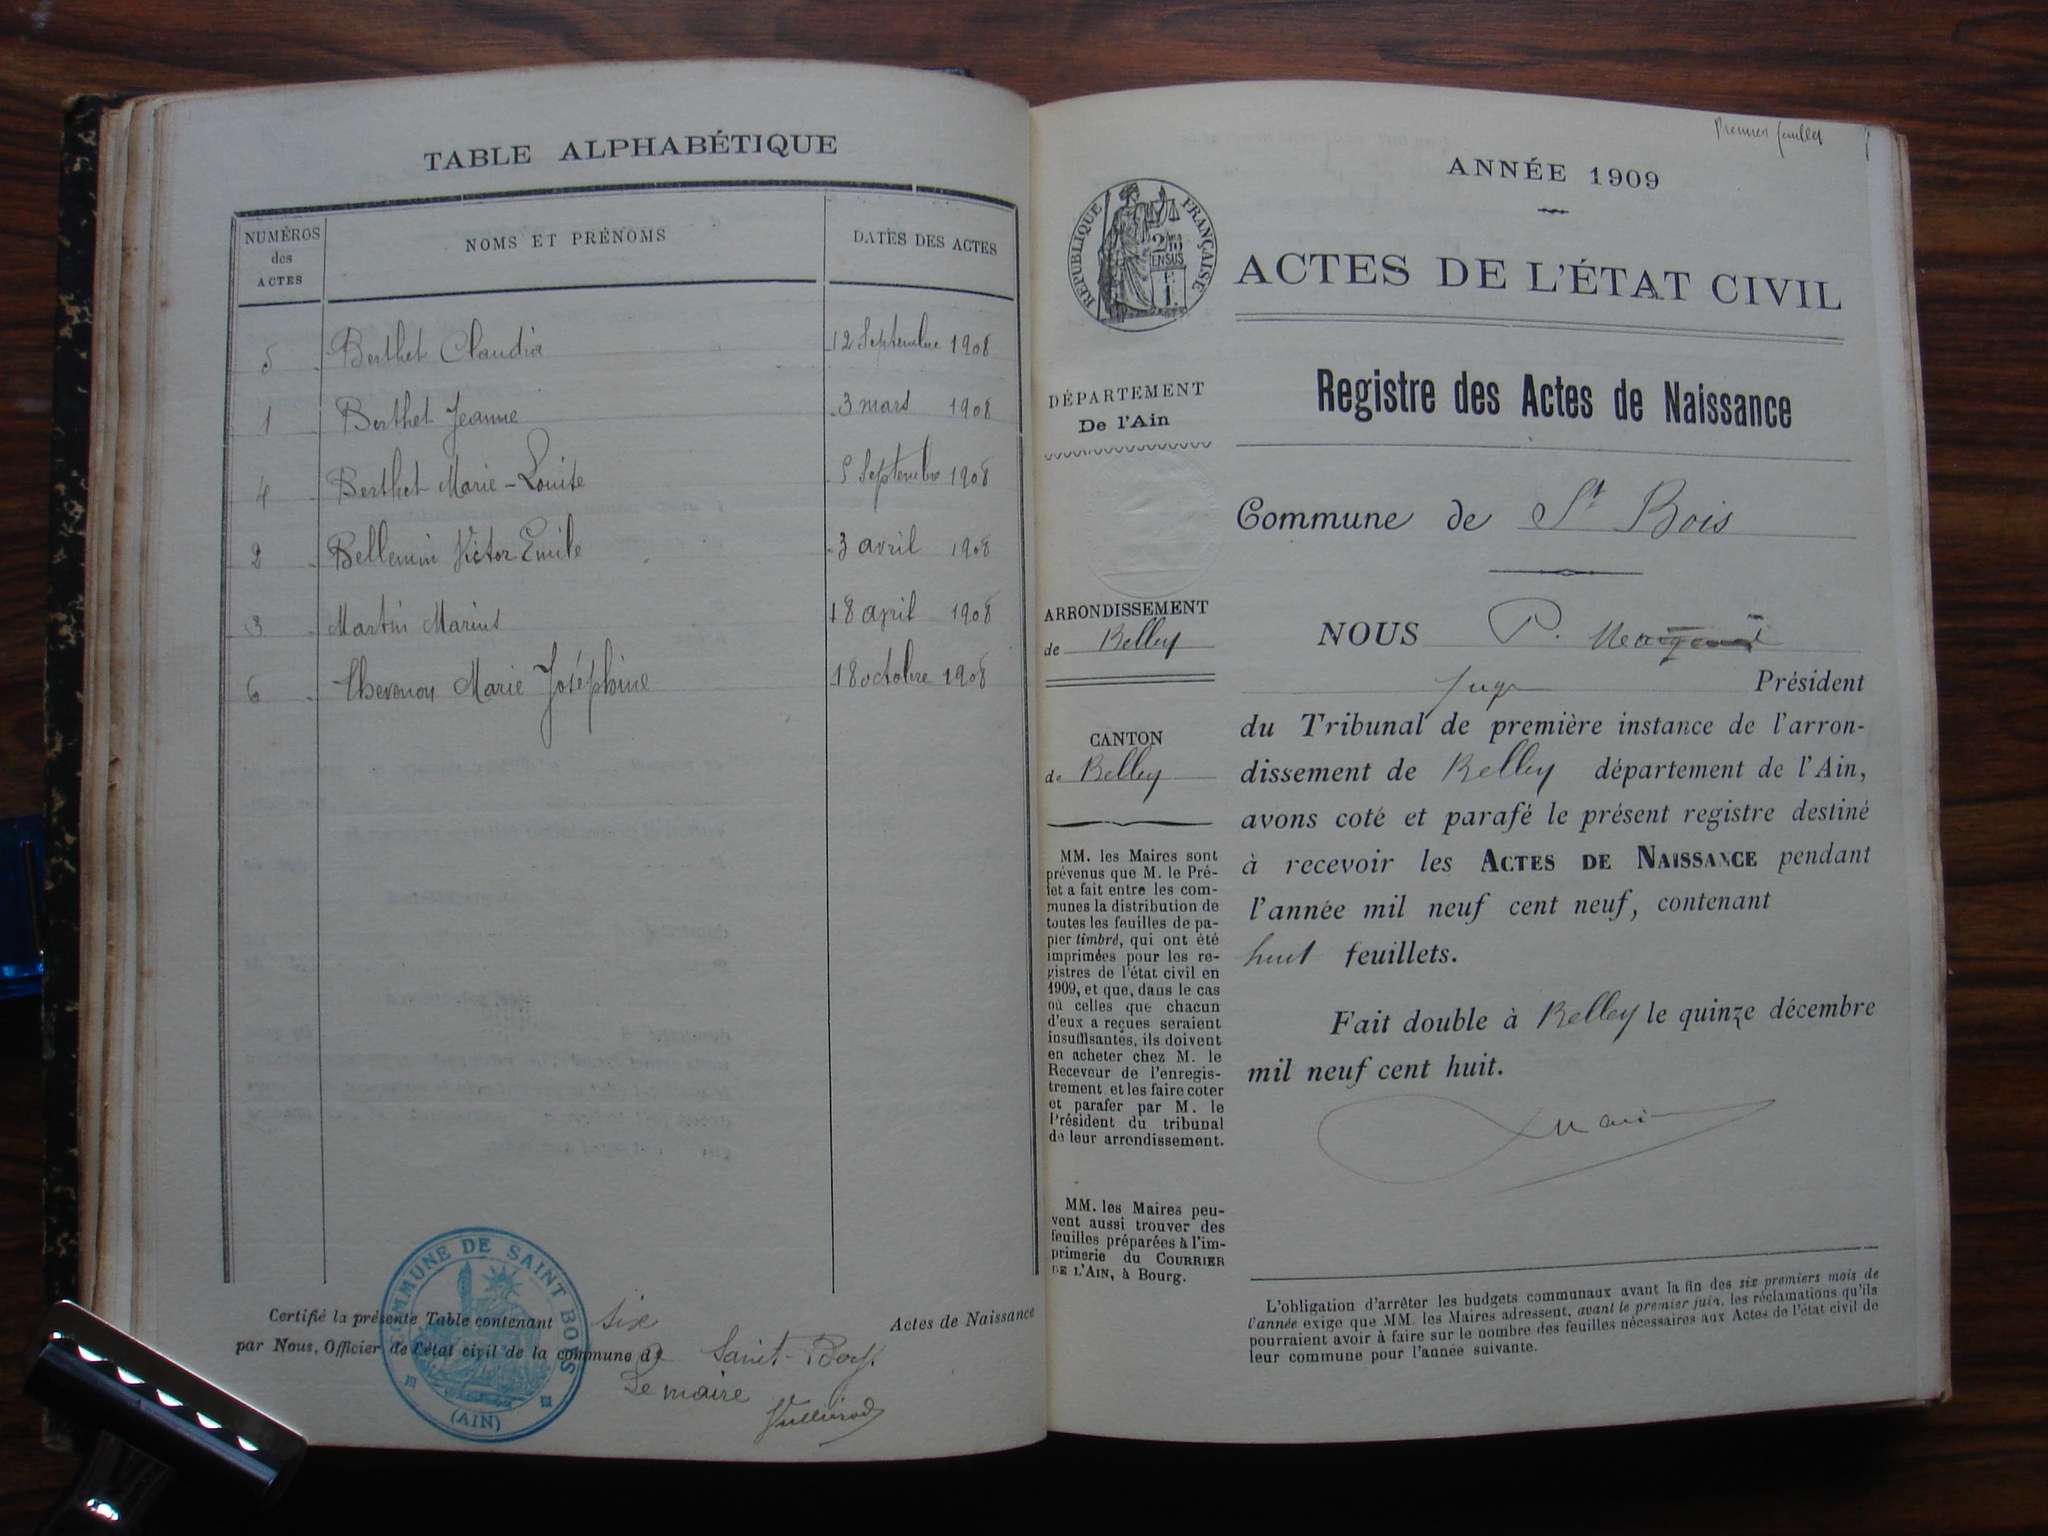 TABLE ALPHABÉTIQUE
NUMÉROS des ACTES NOMS ET PRÉNOMS DATES DES ACTES
5 Berthet Claudia 12 Septembre 1908
1 Berthet Jeanne 3 mars 1908
4 Berthet Marie-Louise 5 Septembre 1908
2 Bellemin Victor Emile 3 avril 1908
3 Martin Marius 18 april 1908
6 Thevenon Marie Joséphine 18 octobre 1908
Certifié la présente Table contenant six Actes de Naissance
par Nous, Officier de l'état civil de la commune de Saint-Bois
Le maire
COMMUNE DE SAINT BOIS
(AIN)
Premier feuillet
ANNÉE 1909
RÉPUBLIQUE FRANÇAISE
ACTES DE L'ÉTAT CIVIL
Registre des Actes de Naissance
DÉPARTEMENT
De l'Ain
Commune de St Bois
ARRONDISSEMENT
de Belley
CANTON
de Belley
MM. les Maires sont
prévenus que M. le Pré-
fet a fait entre les com-
munes la distribution de
toutes les feuilles de pa-
pier timbré, qui ont été
imprimées pour les re-
gistres de l'état civil en
1909, et que, dans le cas
où celles que chacun
d'eux a reçues seraient
insuffisantes, ils doivent
en acheter chez M. le
Receveur de l'enregis-
trement et les faire coter
et parafer par M. le
Président du tribunal
de leur arrondissement.
MM. les Maires peu-
vent aussi trouver des
feuilles préparées à l'im-
primerie du COURRIER
DE L'AIN, à Bourg.
NOUS P.
Juge Président
du Tribunal de première instance de l'arron-
dissement de Belley département de l'Ain,
avons coté et parafé le présent registre destiné
à recevoir les ACTES DE NAISSANCE pendant
l'année mil neuf cent neuf, contenant
huit feuillets.
Fait double à Belley le quinze décembre
mil neuf cent huit.
L'obligation d'arrêter les budgets communaux avant la fin des six premiers mois de
l'année exige que MM. les Maires adressent, avant le premier juin, les réclamations qu'ils
pourraient avoir à faire sur le nombre des feuilles nécessaires aux Actes de l'état civil de
leur commune pour l'année suivante.